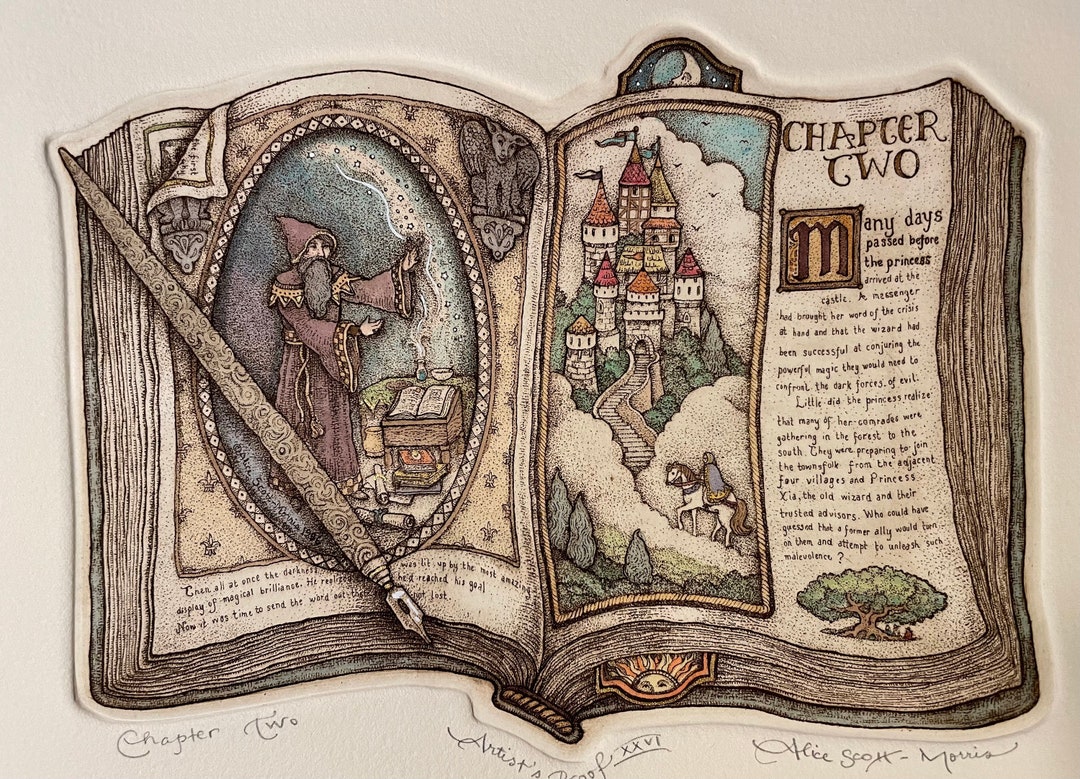 Then all at once the darkness was lit up by the most amazing
display of magical brilliance. He realized he'd reached his goal
Now it was time to send the word out not lost.
CHAPTER
TWO
Many days
passed before
the princess
arrived at the
castle. A messenger
had brought her word of the crisis
at hand and that the wizard had
been successful at conjuring the
powerful magic they would need to
confront the dark forces of evil.
Little did the princess realize
that many of her comrades were
gathering in the forest to the
south. They were preparing to join
the townsfolk from the adjacent
four villages and Princess
Xia, the old wizard and their
trusted advisors. Who could have
guessed that a former ally would turn
on them and attempt to unleash such
malevolence?
Chapter Two
Artist's Proof XXVI
Alice Scott-Morris